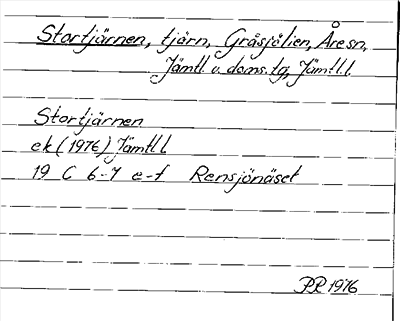 Stortjärnen, tjärn, Gråsjölien, Åre sn,
Jämtl. v. doms.tg, Jämtl. l.
Stortjärnen
ek (1976) Jämtl l
19 C 6-7 e-f Rensjönäset
PR 1976